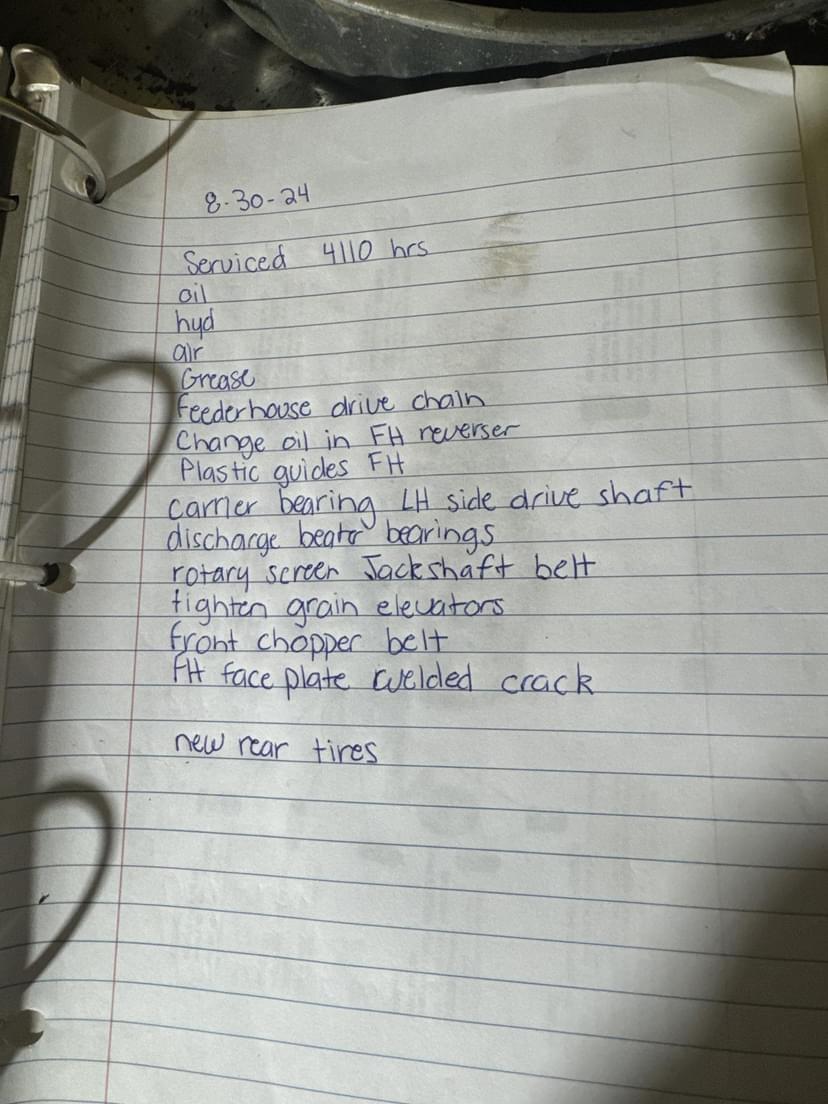 8-30-24
Serviced 4110 hrs
oil
hyd
air
Grease
feederhouse drive chain
Change oil in FH reverser
Plastic guides FH
carrier bearing LH side drive shaft
discharge beater bearings
rotary screen Jackshaft belt
tighten grain elevators
front chopper belt
FH face plate welded crack
new rear tires